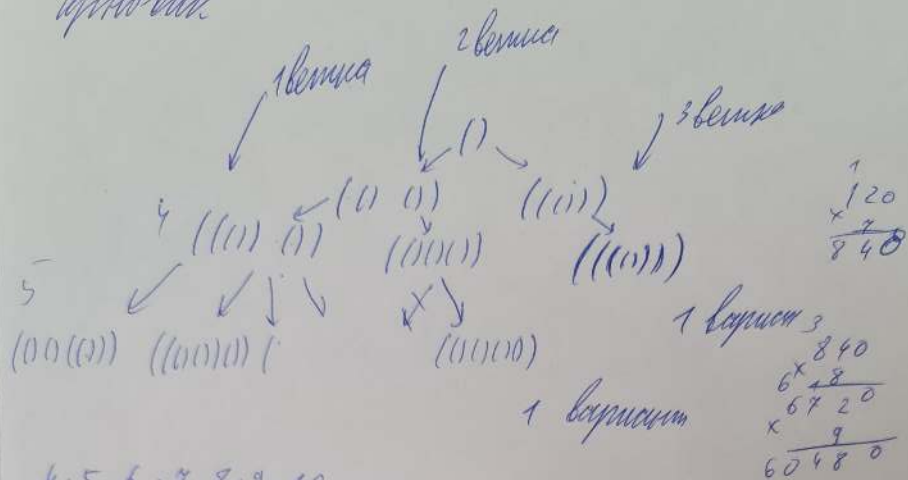 1 ветка
2 ветка
3 ветка
()
(() ())
((()))
4 ((()) ())
(()()())
(((())))
5
(()()(()))
((()()) ()) (
(()()()())
1 вариант
1 вариант
1
120
× 7
840
3
840
× 8
6720
× 9
60480
4 5 6 7 8 9 10